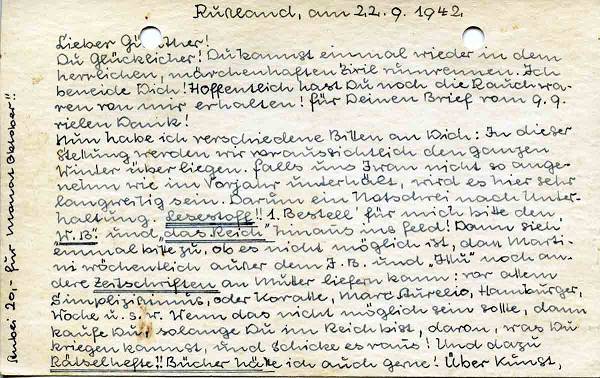 Rußland, am 22.9.1942
Lieber Günther!
Du Glücklicher! Du kannst einmal wieder in dem
herrlichen, märchenhaften Zivil rumrennen. Ich
beneide Dich! Hoffentlich hast Du noch die Rauchwa-
ren von mir erhalten! für Deinen Brief vom 9.9.
vielen Dank!
Nun habe ich verschiedene Bitten an Dich: In dieser
Stellung werden wir voraussichtlich den ganzen
Winter über liegen. falls uns Iwan nicht so ange-
nehm wie im Vorjahr unterhält, wird es hier sehr
langweilig sein. Darum ein Notschrei nach Unter-
haltung. Lesestoff!! 1. Bestell' für mich bitte den
„V.B." und „das Reich" hinaus ins feld! Dann sieh'
einmal bitte zu, ob es nicht möglich ist, dan Marti-
ni wöchentlich außer dem J.B. und „Jllu" noch an-
dere Zeitschriften an Mutter liefern kann: vor allem
Simplizissimus, oder Koralle, Marc Aurelio, Hamburger,
Woche u.s.w. Wenn das nicht möglich sein sollte, dann
kaufe Du, solange Du im Reich bist, davon, was Du
kriegen kannst, und schicke es raus! Und dazu
Rätselhefte!! Bücher hätte ich auch gerne! Über Kunst,
Anbei 20,- für Monat Oktober!!